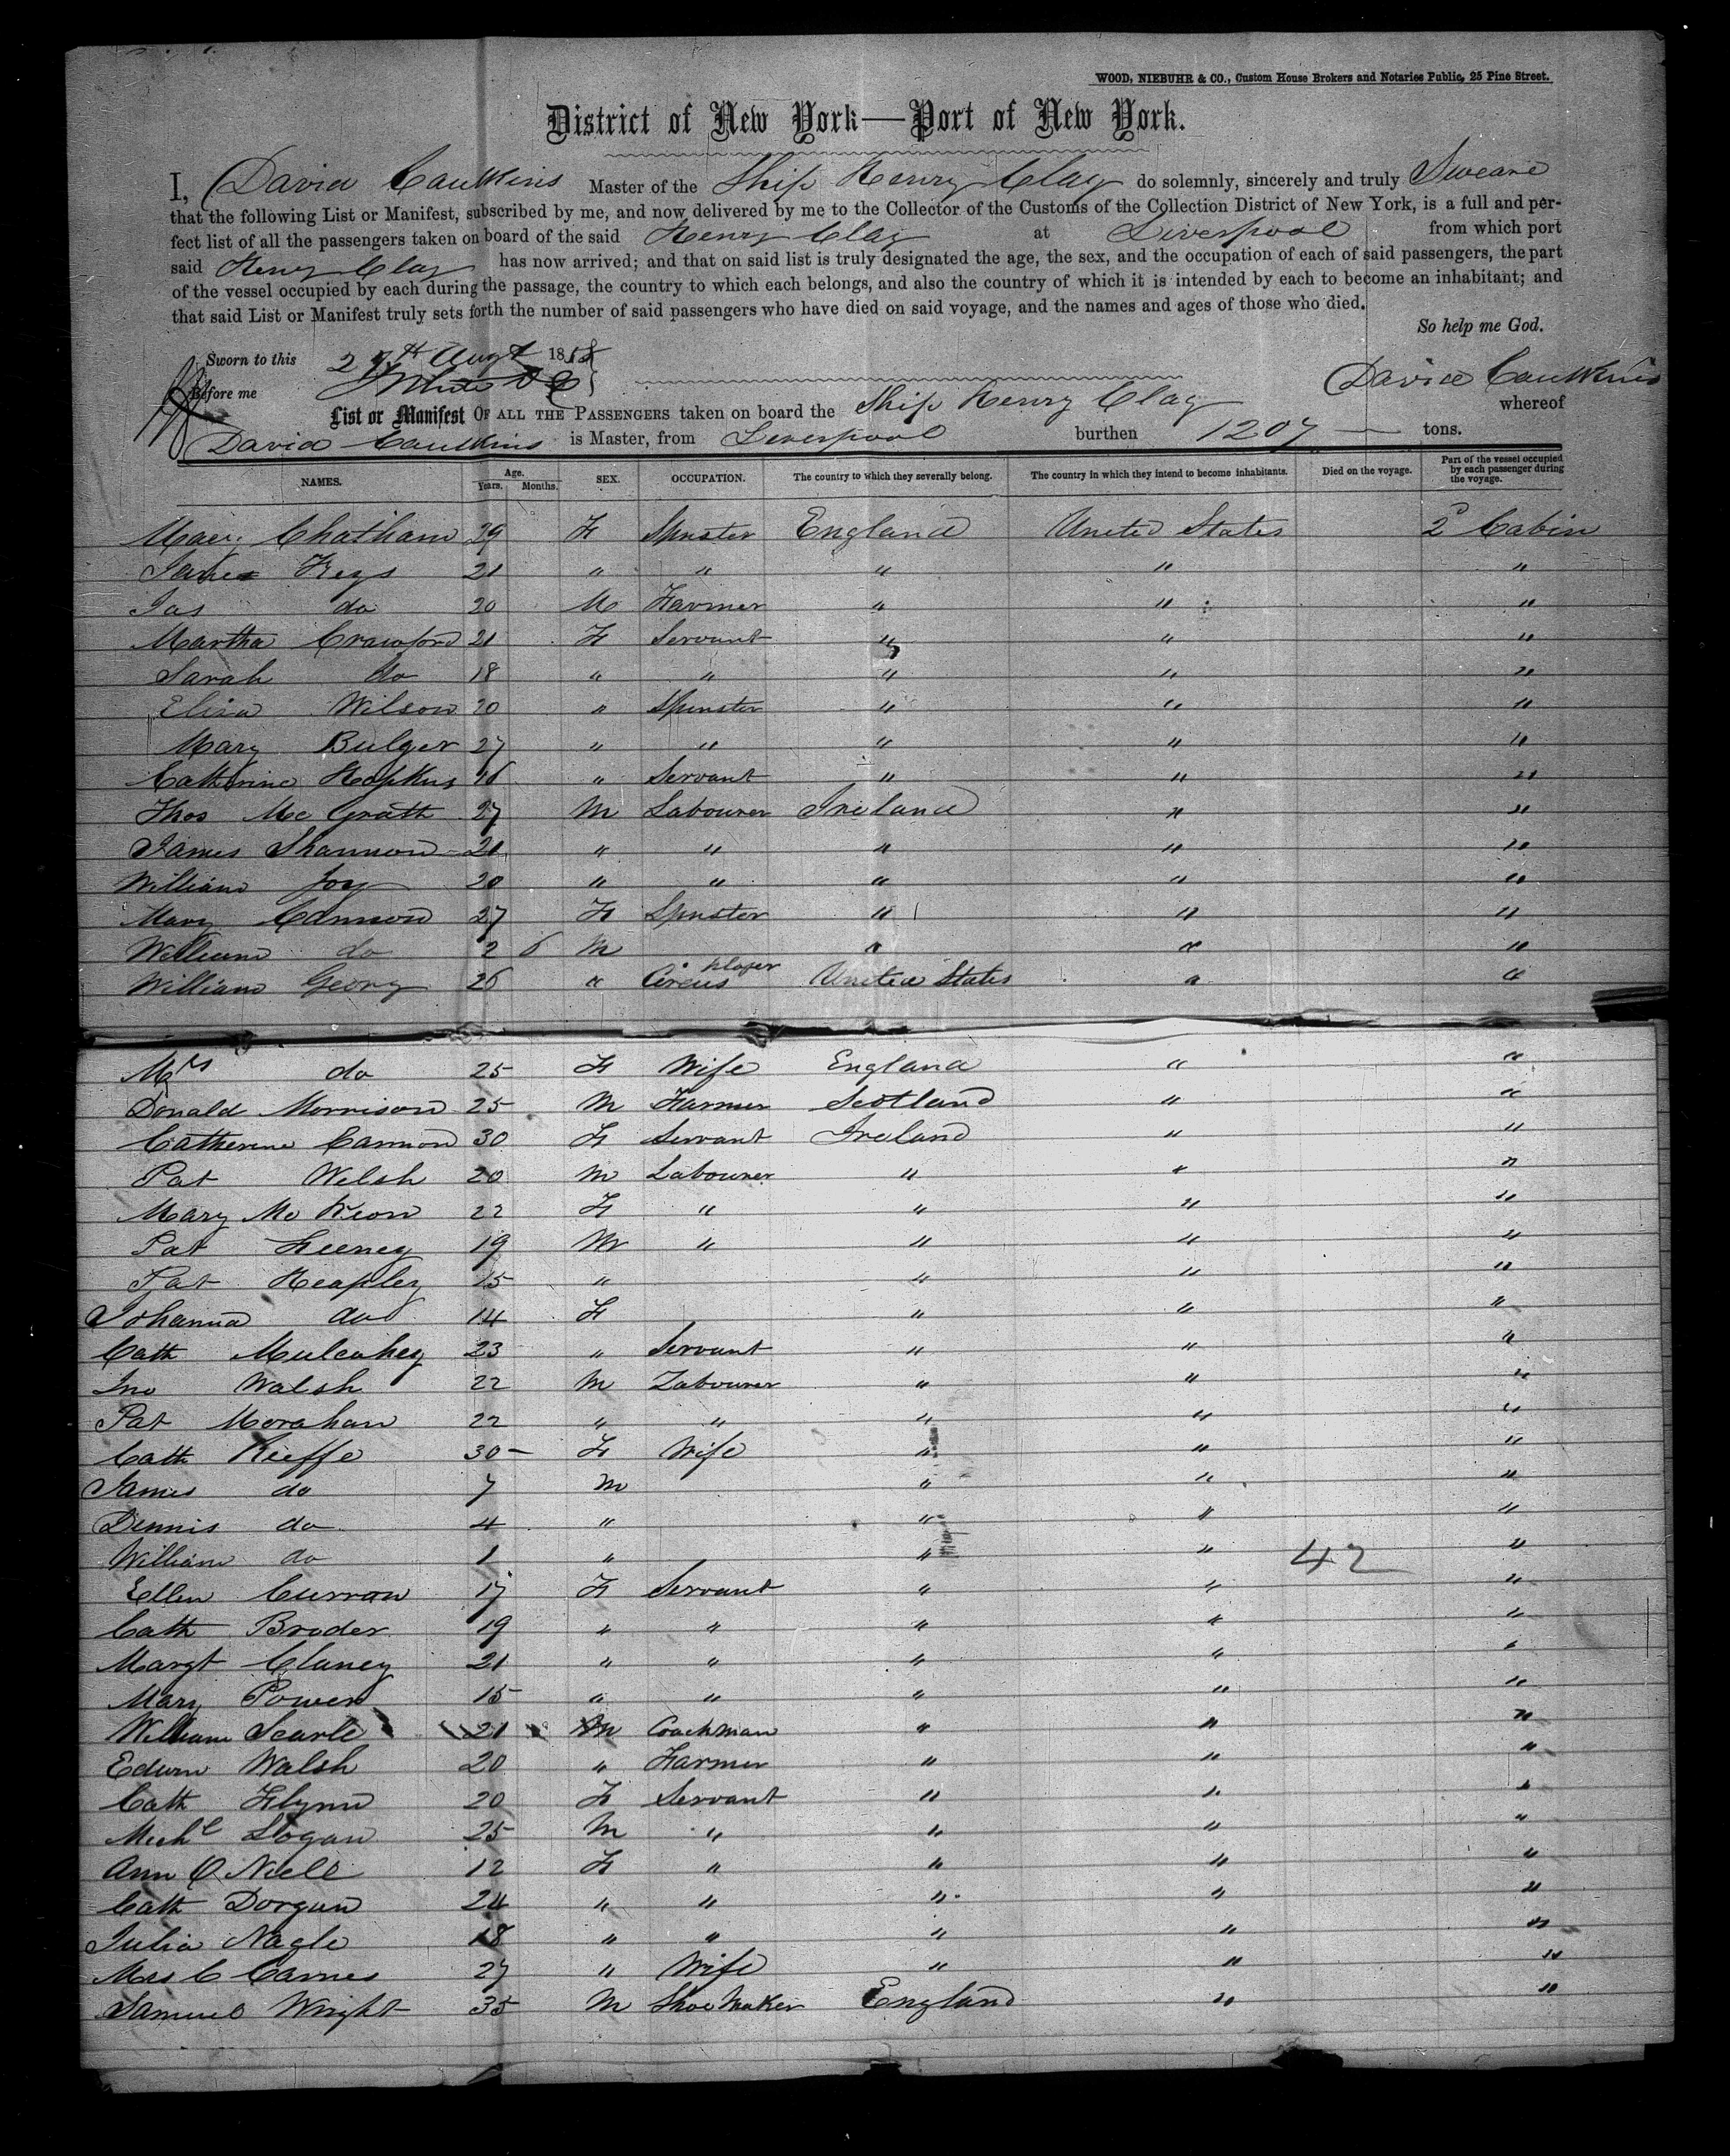 WOOD, NIEBUHR & CO., Custom House Brokers and Notaries Public, 25 Pine Street.
District of New York—Port of New York.
I, David Caulkins Master of the Ship Henry Clay do solemnly, sincerely and truly Sweare
that the following List or Manifest, subscribed by me, and now delivered by me to the Collector of the Customs of the Collection District of New York, is a full and per-
fect list of all the passengers taken on board of the said Henry Clay at Liverpool from which port
said Henry Clay has now arrived; and that on said list is truly designated the age, the sex, and the occupation of each of said passengers, the part
of the vessel occupied by each during the passage, the country to which each belongs, and also the country of which it is intended by each to become an inhabitant; and
that said List or Manifest truly sets forth the number of said passengers who have died on said voyage, and the names and ages of those who died.
So help me God.
Sworn to this 27th Augt 1858
Before me David Caulkins
List or Manifest OF ALL THE PASSENGERS taken on board the Ship Henry Clay whereof
David Caulkins is Master, from Liverpool burthen 1207 — tons.
NAMES. Age. Years. Months. SEX. OCCUPATION. The country to which they severally belong. The country in which they intend to become inhabitants. Died on the voyage. Part of the vessel occupied by each passenger during the voyage.
Mary Chatham 29 F Spnster England United States 2d Cabin
Jane Keys 21 " " " " "
Jas do 20 M Farmer " " "
Martha Crawford 21 F Servant " " "
Sarah do 18 " " " " "
Eliza Wilson 20 " Spinster " " "
Mary Bulger 27 " " " " "
Catherine Hopkins 16 " Servant " " "
Thos Mc Grath 27 M Labourer Ireland " "
James Shannon 21 " " " " "
William Joy 20 " " " " "
Mary Cannon 27 F Spnster " " "
William do 2 6 M " " "
William Georg 26 " Circus player United States " "
Mrs do 25 F Wife England " "
Donald Morrison 25 M Farmer Scotland " "
Catherine Cannon 30 F Servant Ireland " "
Pat Welsh 20 M Labourer " " "
Mary Mc Keon 22 F " " " "
Pat Feeney 19 M " " " "
Pat Heapley 15 " " " "
Johanna do 14 F " " "
Cath Mulcahey 23 " Servant " " "
Jno Walsh 22 M Labourer " " "
Pat Morahan 22 " " " " "
Cath Kieffe 30 – F Wife " " "
James do 7 M " " "
Dennis do 4 " " " "
William do 1 " " " 42 "
Ellen Curran 17 F Servant " " "
Cath Broder 19 " " " " "
Margt Clancy 21 " " " " "
Mary Power 15 " " " " "
William Searle 21 M Coachman " " "
Edwin Walsh 20 " Farmer " " "
Cath Flynn 20 F Servant " " "
Michl Logan 25 M " " " "
Ann O Niell 12 F " " " "
Cath Dorgan 24 " " " " "
Julia Nagle 18 " " " " "
Mrs C Carnes 27 " Wife " " "
Samuel Wright 35 M Shoe Maker England " "